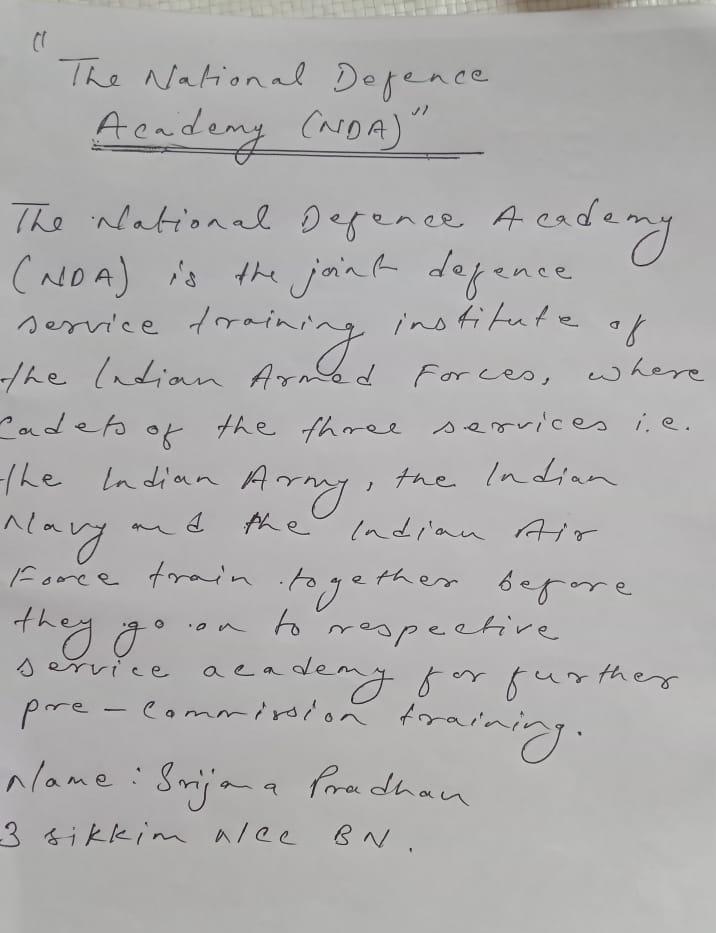 "The National Defence
Academy (NDA)"
The National Defence Academy
(NDA) is the joint defence
service training institute of
the Indian Armed Forces, where
Cadets of the three services i.e.
the Indian Army, the Indian
Navy and the Indian Air
Force train together before
they go on to respective
service academy for further
pre - Commission training.
Name : Srijana Pradhan
3 sikkim NCC BN.